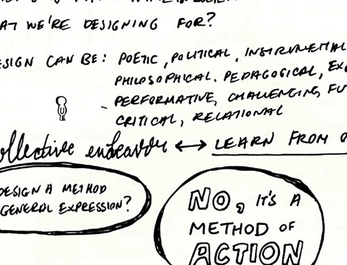 WHAT WE'RE DESIGNING FOR?
DESIGN CAN BE: POETIC, POLITICAL, INSTRUMENTAL
PHILOSOPHICAL. PEDAGOGICAL, EX
PERFORMATIVE, CHALLENGING, FU
CRITICAL, RELATIONAL
collective endeavour ↔ LEARN FROM O
DESIGN A METHOD
GENERAL EXPRESSION?
NO, IT'S A
METHOD OF
ACTION